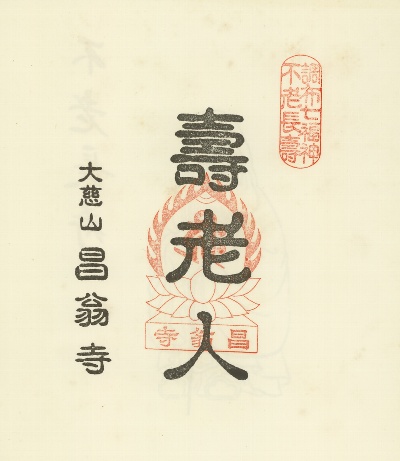 調布七福神
不老長壽
壽老人
昌翁寺
大慈山 昌翁寺